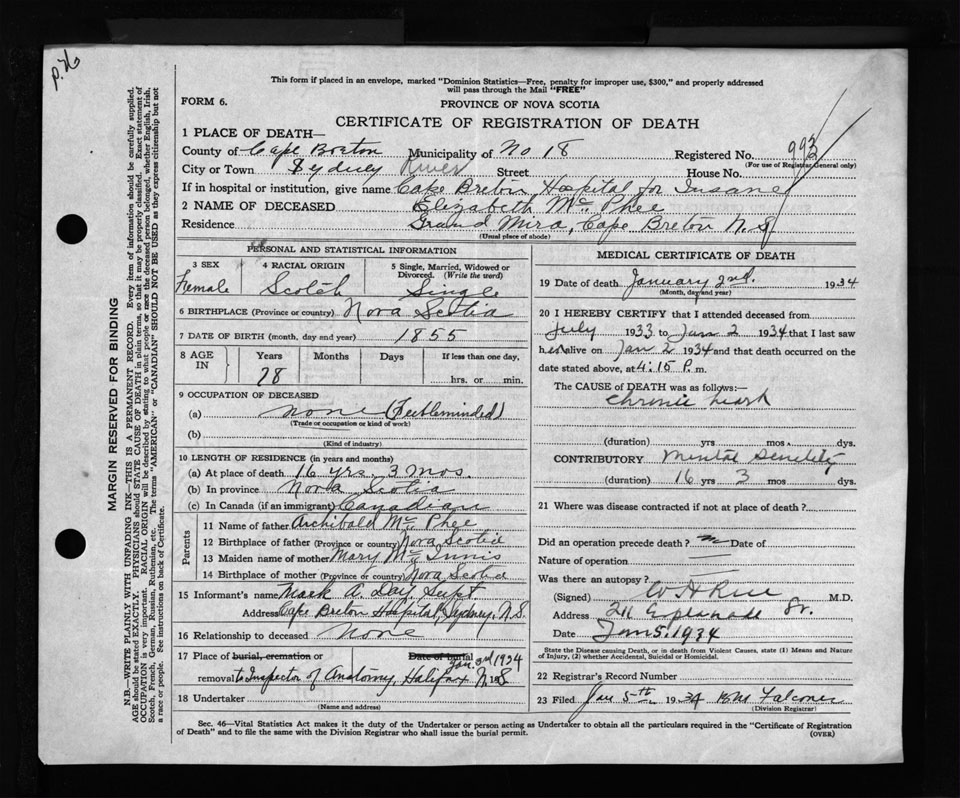 p.26
This form if placed in an envelope, marked "Dominion Statistics—Free, penalty for improper use, $300," and properly addressed
will pass through the Mail "FREE"
FORM 6.
PROVINCE OF NOVA SCOTIA
CERTIFICATE OF REGISTRATION OF DEATH
1 PLACE OF DEATH—
County of Cape Breton Municipality of No 18 Registered No. 993
(For use of Registrar General only)
City or Town Sydney River Street House No.
If in hospital or institution, give name Cape Breton Hospital for Insane
2 NAME OF DECEASED Elizabeth Mc Phee
Residence Grand Mira, Cape Breton N.S.
(Usual place of abode)
PERSONAL AND STATISTICAL INFORMATION
3 SEX 4 RACIAL ORIGIN 5 Single, Married, Widowed or Divorced. (Write the word)
Female Scotch Single
6 BIRTHPLACE (Province or country) Nova Scotia
7 DATE OF BIRTH (month, day and year) 1855
8 AGE IN Years Months Days If less than one day,
78 hrs. or min.
9 OCCUPATION OF DECEASED
(a) None (Feebleminded)
(Trade or occupation or kind of work)
(b)
(Kind of industry)
10 LENGTH OF RESIDENCE (in years and months)
(a) At place of death 16 yrs. 3 mos.
(b) In province Nova Scotia
(c) In Canada (if an immigrant) Canadian
Parents
11 Name of father Archibald Mc Phee
12 Birthplace of father (Province or country) Nova Scotia
13 Maiden name of mother Mary Mc Innis
14 Birthplace of mother (Province or country) Nova Scotia
15 Informant's name Mark A. Day, Supt
Address Cape Breton Hospital, Sydney, N.S.
16 Relationship to deceased None
17 Place of burial, cremation or Date of burial
Jan. 3rd 1934
removal to Inspector of Anatomy, Halifax N.S
18 Undertaker
(Name and address)
MEDICAL CERTIFICATE OF DEATH
19 Date of death January 2nd. 1934
(Month, day and year)
20 I HEREBY CERTIFY that I attended deceased from
July 1933 to Jan 2 1934 that I last saw
her alive on Jan 2 1934 and that death occurred on the
date stated above, at 4.15 P.m.
The CAUSE OF DEATH was as follows:—
Chronic heart
(duration) yrs mos. dys.
CONTRIBUTORY Mental Senility
(duration) 16 yrs 3 mos dys.
21 Where was disease contracted if not at place of death?
Did an operation precede death? no Date of
Nature of operation
Was there an autopsy?
(Signed) M.D.
Address 211 Esplanade St.
Date Jan 5. 1934
State the Disease causing Death, or in death from Violent Causes, state (1) Means and Nature
of Injury, (2) whether Accidental, Suicidal or Homicidal.
22 Registrar's Record Number
23 Filed Jan 5th 1934 Falconer
(Division Registrar)
Sec. 46—Vital Statistics Act makes it the duty of the Undertaker or person acting as Undertaker to obtain all the particulars required in the "Certificate of Registration
of Death" and to file the same with the Division Registrar who shall issue the burial permit.
(OVER)
MARGIN RESERVED FOR BINDING
N.B.—WRITE PLAINLY WITH UNFADING INK—THIS IS A PERMANENT RECORD. Every item of information should be carefully supplied.
AGE should be stated EXACTLY. PHYSICIANS should STATE CAUSE OF DEATH in plain terms, so that it may be properly classified. Exact statement of
OCCUPATION is very important. RACIAL ORIGIN will be described by stating to what people or race the deceased person belonged, whether English, Irish,
Scotch, French, German, Russian, Ruthenian, etc. The terms "AMERICAN" or "CANADIAN" SHOULD NOT BE USED as they express citizenship but not
a race or people. See instructions on back of Certificate.